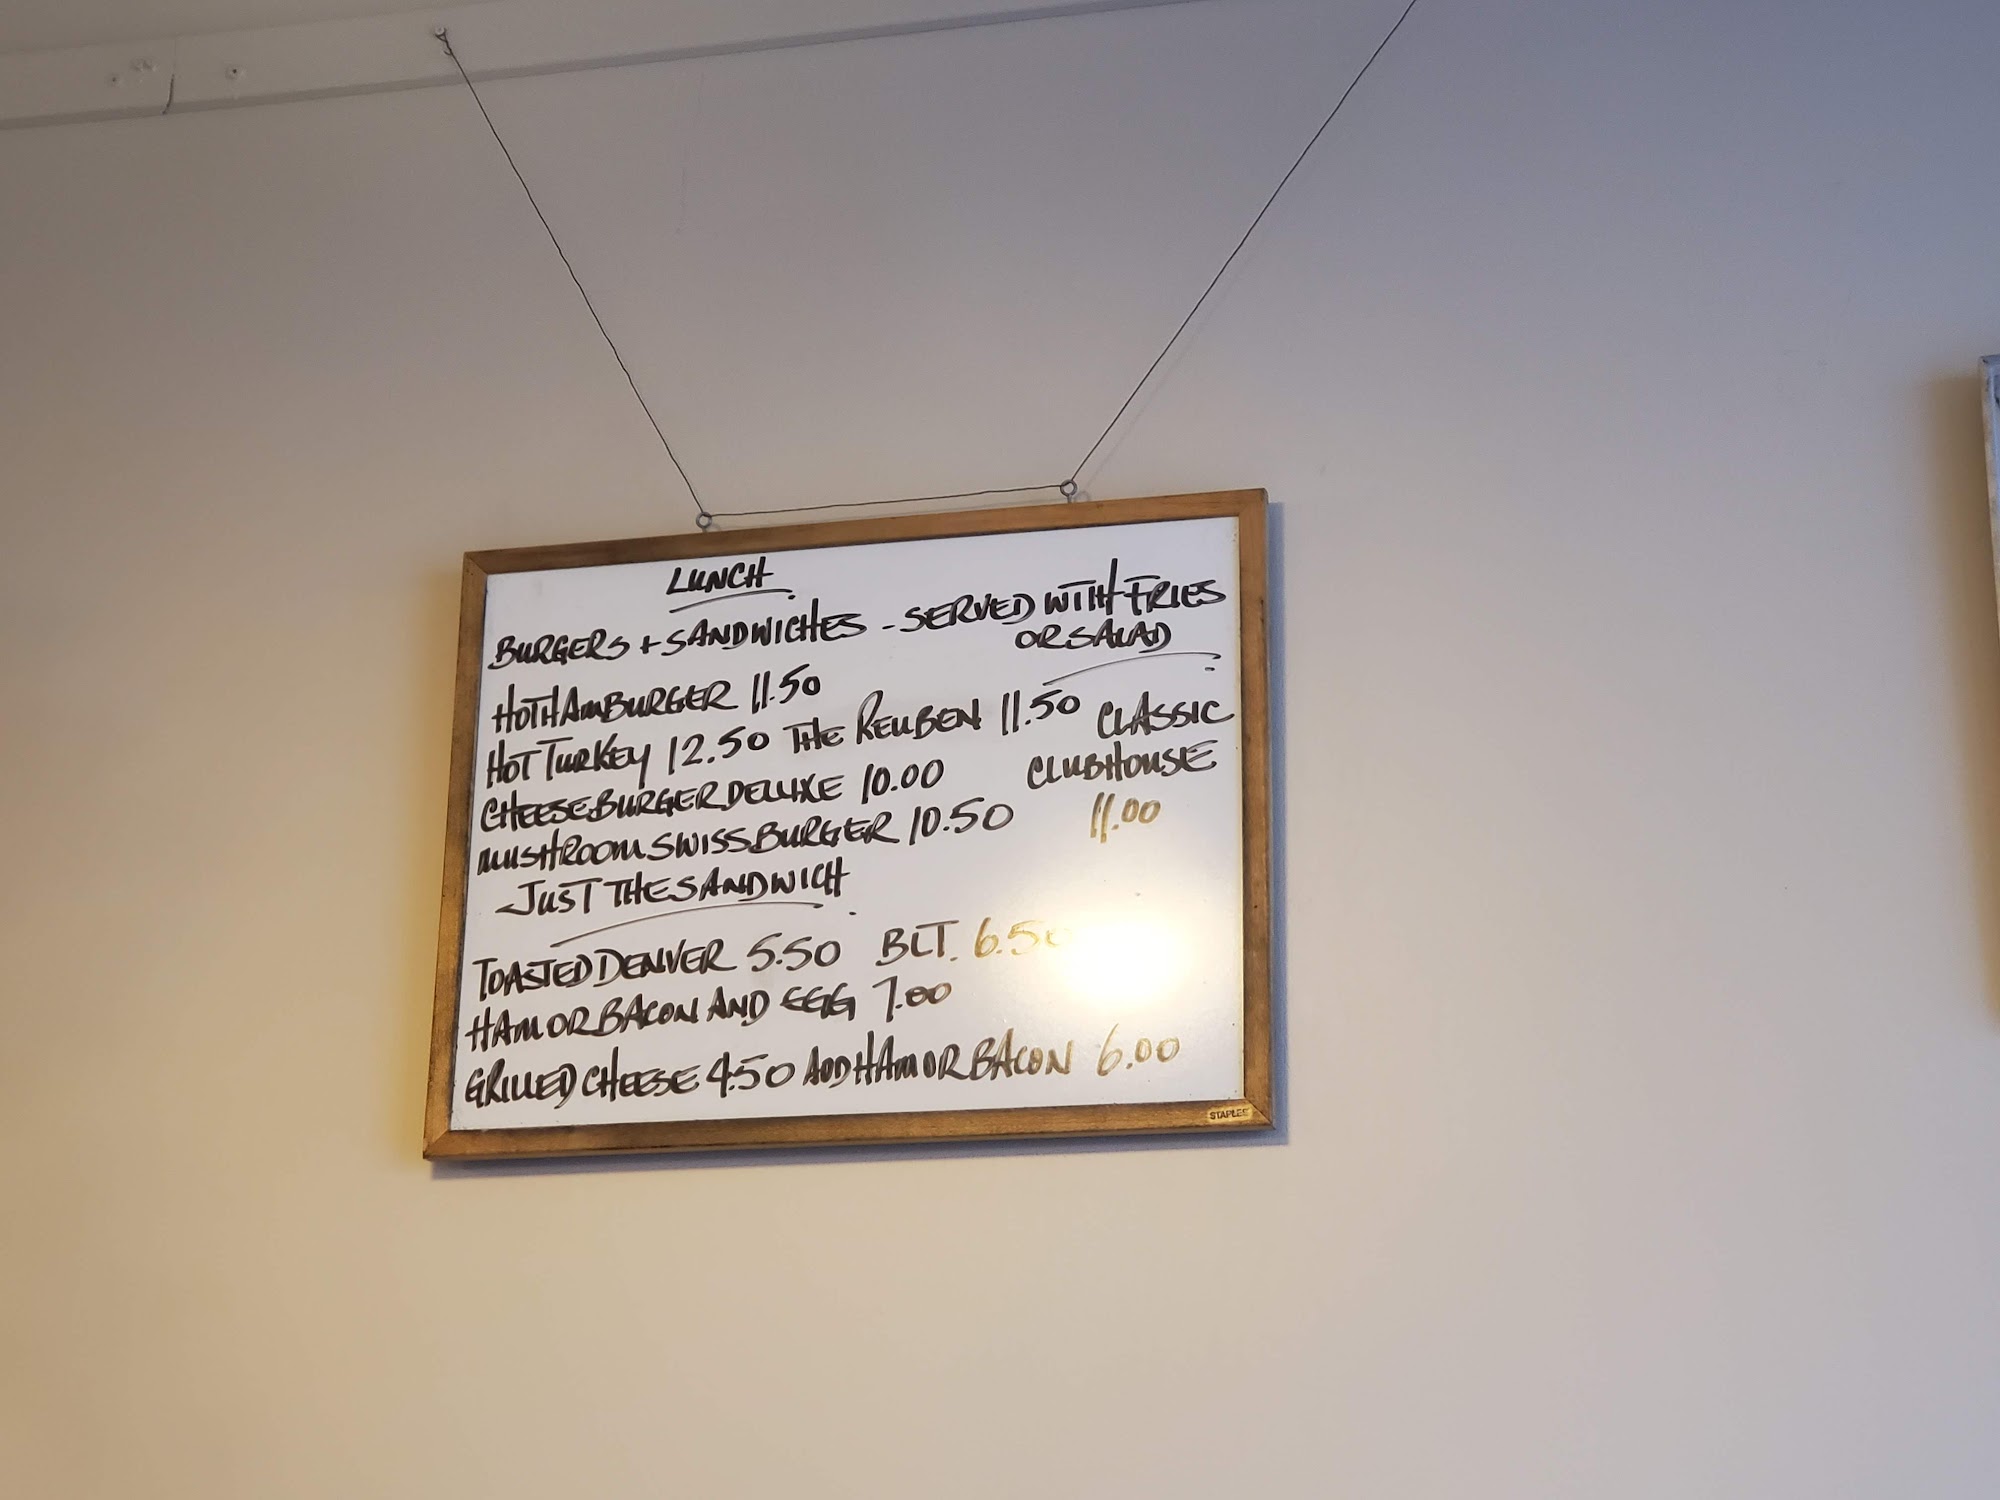 LUNCH
BURGERS + SANDWICHES - SERVED WITH FRIES
OR SALAD
HOT HAMBURGER 11.50
HOT TURKEY 12.50 THE REUBEN 11.50 CLASSIC
CHEESEBURGER DELUXE 10.00 CLUBHOUSE
MUSHROOM SWISS BURGER 10.50 11.00
JUST THE SANDWICH
TOASTED DENVER 5.50 BLT. 6.50
HAM OR BACON AND EGG 7.00
GRILLED CHEESE 4.50 ADD HAM OR BACON 6.00
STAPLES